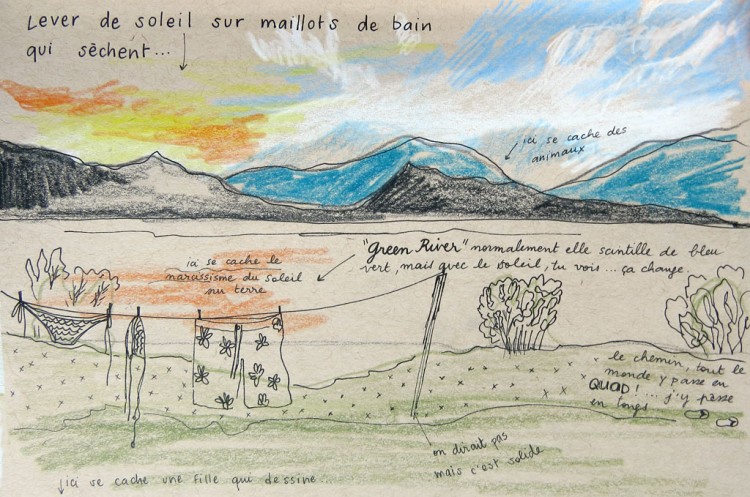 Lever de soleil sur maillots de bain
qui sèchent...
ici se cache des
animaux
"Green River" normalement elle scintille de bleu
vert, mais avec le soleil, tu vois... ça change.
ici se cache le
narcissisme du soleil
sur terre
le chemin, tout le
monde y passe en
QUAD! ... j'y passe
en tongs
on dirait pas
mais c'est solide
ici se cache une fille qui dessine